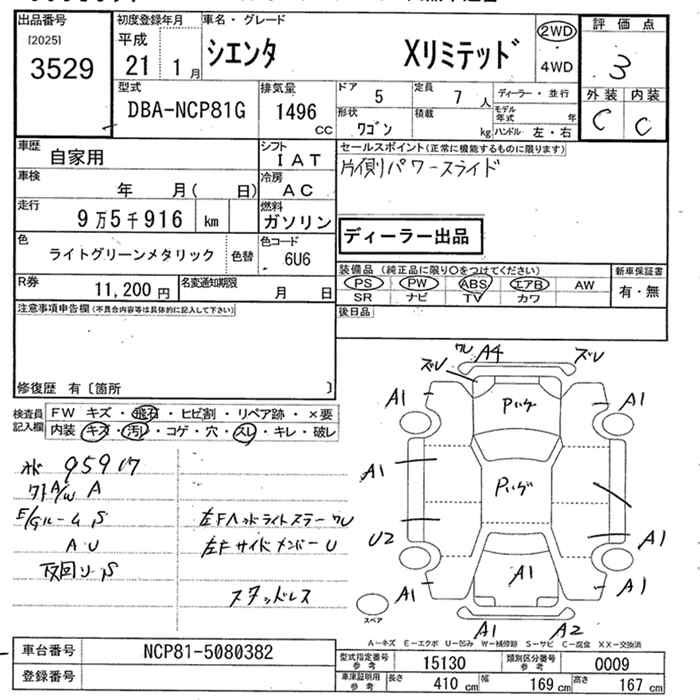 出品番号
[2025]
3529
初度登録年月
平成
21 1月
車名・グレード
シエンタ Xリミテッド
2WD
4WD
評価点
3
外装 内装
C C
型式
DBA-NCP81G
排気量
1496
cc
ドア 5
定員 7 人
形状 ワゴン
積載 kg
ディーラー・並行
モデル年式 年
ハンドル 左・右
車歴 自家用
シフト IAT
車検 年 月( 日)
冷房 AC
走行 9万5千916 km
燃料 ガソリン
色 ライトグリーンメタリック 色替
色コード 6U6
R券 11,200円
名変通知期限 月 日
セールスポイント(正常に機能するものに限ります)
片側パワースライド
ディーラー出品
装備品(純正品に限り○をつけてください)
PS PW ABS エアB AW
SR ナビ TV カワ
新車保証書
有・無
後日品
注意事項申告欄(不具合内容等は具体的に記入して下さい)
修復歴 有〔箇所 〕
検査員記入欄
FW キズ・飛石・ヒビ割・リペア跡・×要
内装 キズ・汚レ・コゲ・穴・スレ・キレ・破レ
A
A U
左Fヘッドライトステー ワU
左Fサイドメンバー U
スタッドレス
ワレ A4
ズレ ズレ
A1 A1
Pハゲ
A1
Pハゲ
U2 A1
A1 A1 A1
スペア
A1 A2
A-キズ E-エクボ U-凹み W-補修跡 S-サビ C-腐食 XX-交換済
車台番号 NCP81-5080382
登録番号
型式指定番号 参考 15130
類別区分番号 参考 0009
車庫証明用 参考 長さ 410 cm 幅 169 cm 高さ 167 cm